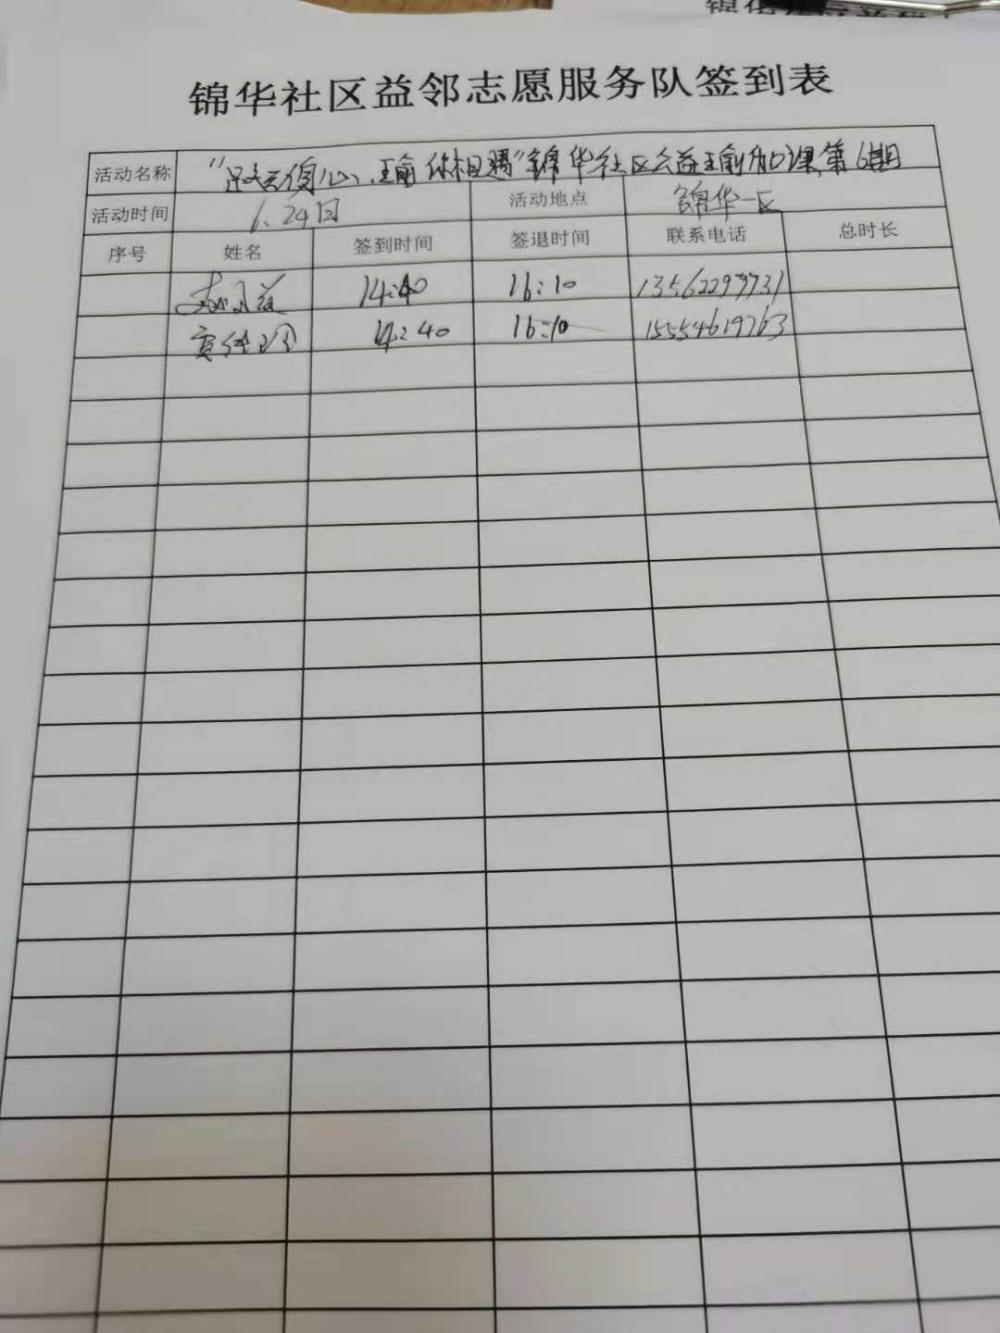 锦华社区益邻志愿服务队签到表
活动名称 "足够信心、瑜你相遇"锦华社区公益瑜伽课第6期
活动时间 6、24日 活动地点 锦华一区
序号 姓名 签到时间 签退时间 联系电话 总时长
14:40 16:10 13562299731
14:40 16:10 15554619763